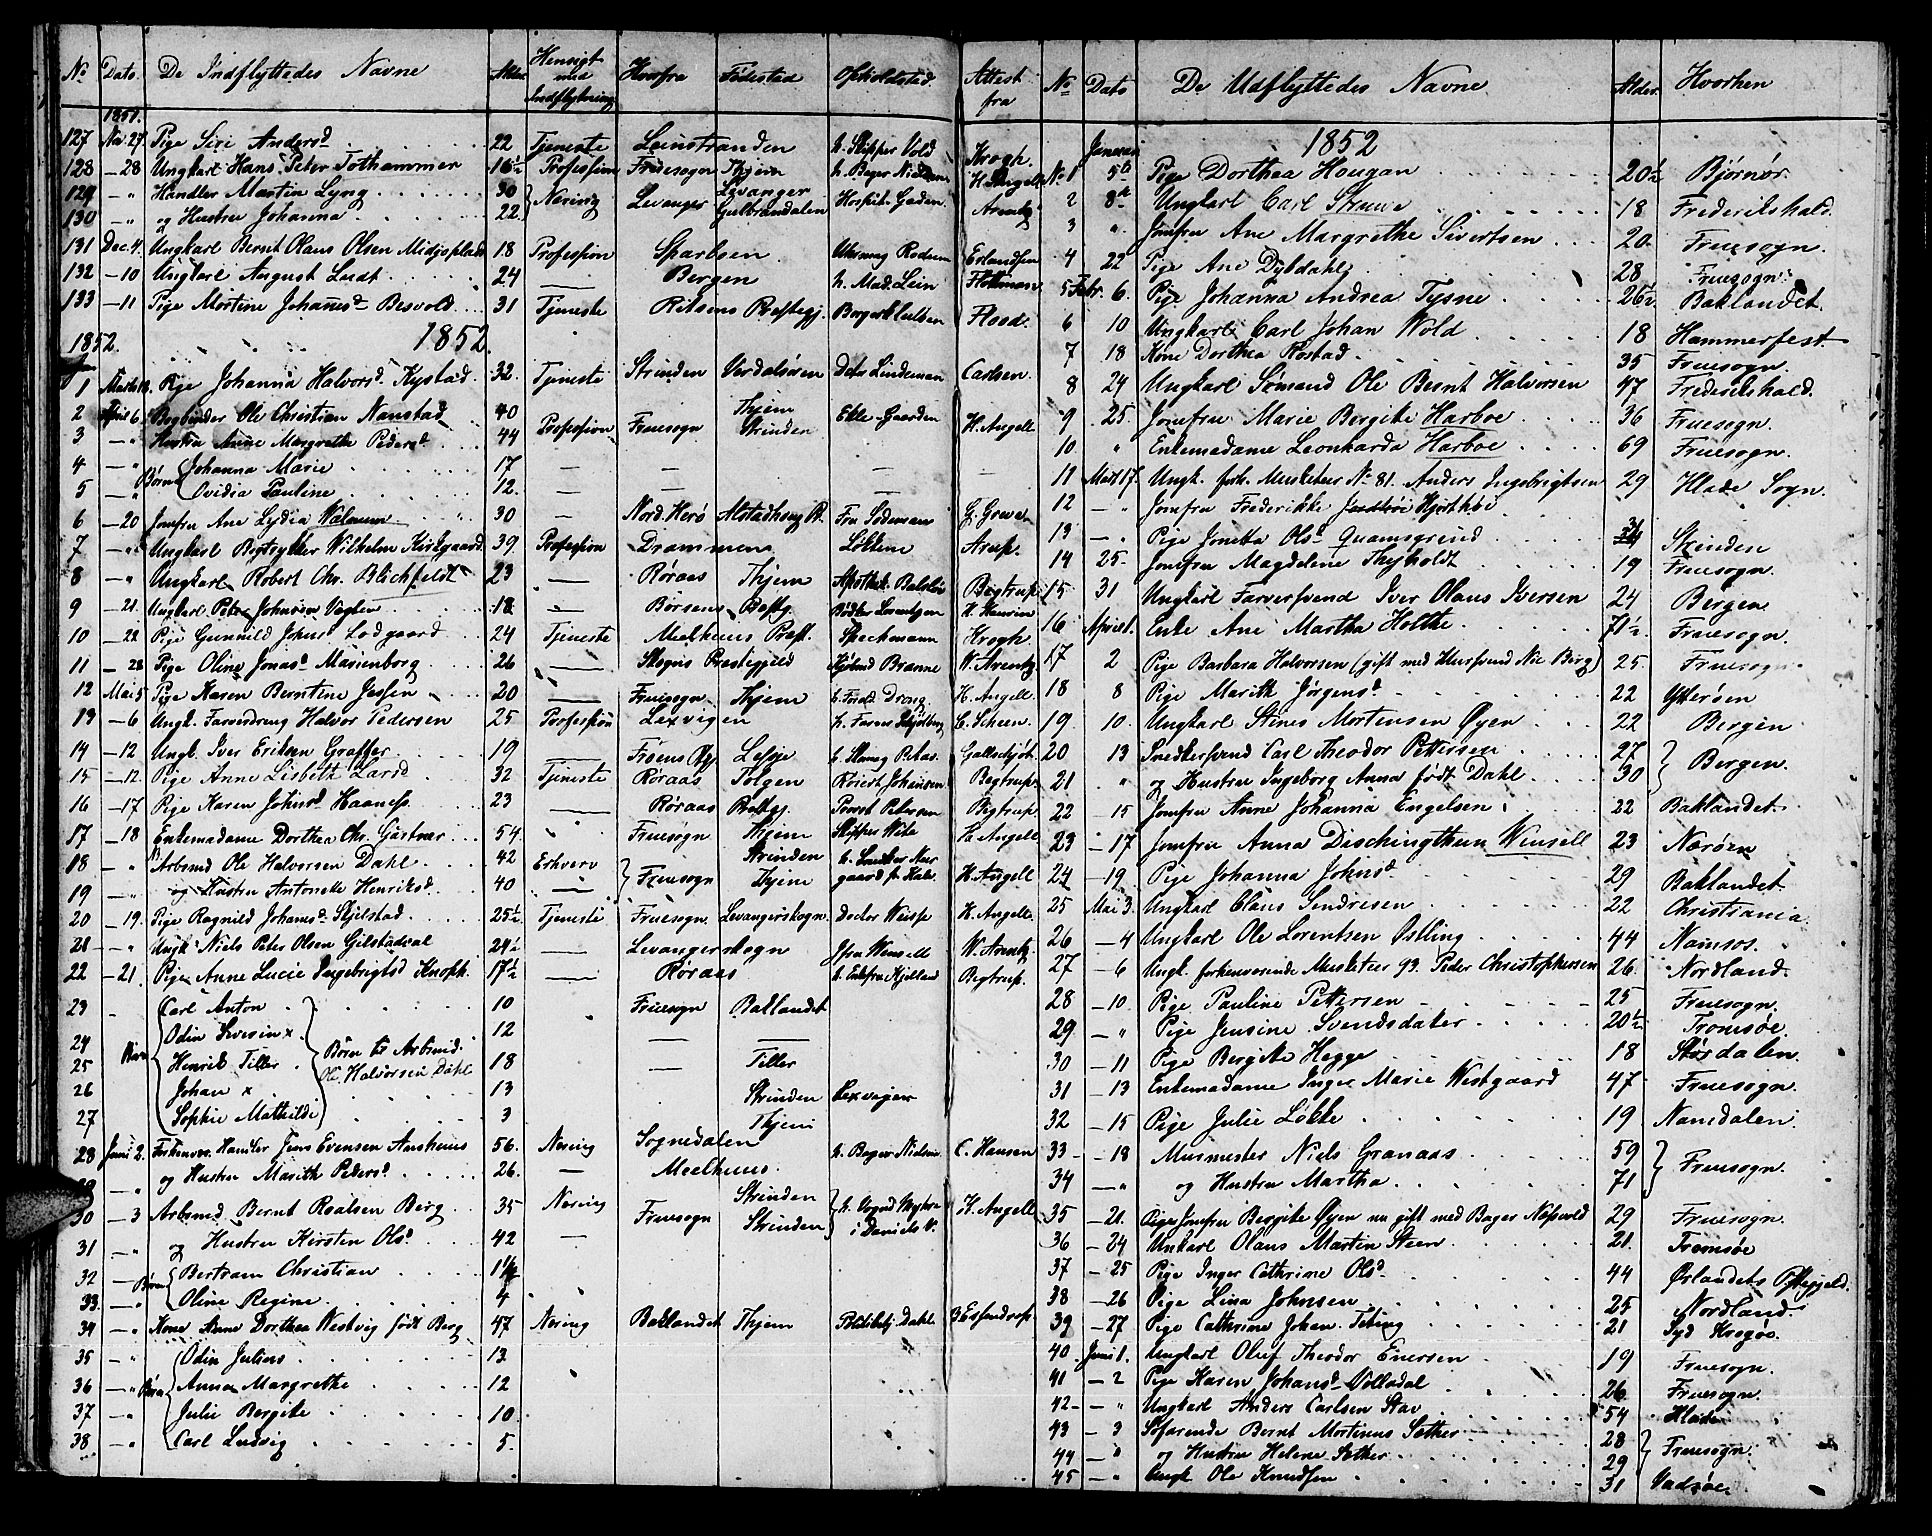 No Dato. De Indflyttedes Navne Alder. Hensigt med Indflytning Hvorfra Fødested Opholdssted Attest fra
1851.
127 Nov. 27 Pige Siri Andersd 22 Tjeneste Leinstranden h. Skipper Vold Krogh.
128 — 28 Ungkarl Hans Peter Tothammer 16½ Profession Fruesogn Thjem h. Bager Nielsen H. Angell
129 — " Handler Martin Lyng 30 Nering Levanger Levanger Hospit. Gaden. Arentz
130 — " og Hustru Johanna 22 Gulbrandalen
131 Dec. 4. Ungkarl Bernt Olaus Olsen Midjoplads 18 Profession Sparbuen Erlandsen
132 — 10 Ungkarl August Lundt 24 — Bergen h. Mad. Lein Flottman
133 — 11 Pige Mortine Johannesd Besvold 31 Tjeneste Rissens Præstegj. Flood.
1852. 1852.
1 Marts 18. Pige Johanna Halvorsd. Kystad 32. Tjeneste Strinden Verdalsøren Lindeman Carlsen.
2 April 6. Bogbinder Ole Christian Nanstad 40 Profession Fruesogn Thjem Ekle-Gaarden H. Angell
3 — " Hustru Anne Margrethe Pedersd 44 Strinden
4 — " Børn Johanna Marie 17 — — — — —
5 — " Ovidia Pauline 12. — — — —
6 — 20 Jomfru Ane Lydia Walnum 30 — Nord. Herø Alstadhaug P. Fru Sodeman G. Greve
7 — " Ungkarl Wilhelm Kirkgaard 39 Profession Drammen Løkken Arup.
8 — " Ungkarl Robert Chr. Blichfeldt 23 — Røraas Thjem Bigtrup
9 — 21. Ungkarl Peter Johnsen Viglen 18 — Børsens Præstg. H. Hansen
10 — 22 Pige Gunnild Johnsd Lodgaard 24 Tjeneste Meelhuus Præst. Krogh
11 — 28 Pige Oline Jonasd. Marienborg 26 — Skogns Præstegjeld W. Arentz
12 Mai 5 Pige Karen Berntine Jessen 20 — Fruesogn Thjem H. Angell
13 — 6 Ungk. Farverdreng Halvor Pedersen 25 Profession Lexvigen C. Scheen
14 — 12 Ungk. Iver Eriksen Graffer 19 — Lesje Gallschjøt.
15 — 12 Pige Anne Lisbeth Larsd 32 Tjeneste Røraas Tolgen Johansen Begtrup
16 — 17 Pige Karen Johnsd Haaness 23 — Røraas Provst Petersen Bigtrup
17 — 18 Enkemadame Dorthea Chr. Gartner 54. Fruesogn Thjem Skipper Wita H. Angell
18 — " Arbsmd Ole Halvorsen Dahl 42 Erhverv Fruesogn Strinden H. Angell
19 — " og Hustru Antonette Henriksd. 40 — Thjem
20 — 19. Pige Ragnild Johansd. Skjelstad 25½ Tjeneste Fruesogn. Levangerskogn. Doctor Weisse H. Angell.
21 — " Ungk. Niels Peter Olsen Gilstadval 24½ — Levangerskogn W. Arentz
22 — 21. Pige Anne Lucie Ingebrigtsd Knoph 17½ — Røraas Begtrup.
23 Børn Carl Anton 10 Fruesogn Baklandet
24 Odin Severin x. 12 — —
25 Henrik Tiller Børn til Arbsmd. Ole Halvorsen Dahl 18 — Tiller
26 Johan x 13 Strinden Lexvigen
27 Sophie Mathilde 3 Thjem
28 Juni 2. Forhenvær. Handler Jens Evensen Aushuus 56. Nering Sognedalen h. Bager Nielsen C. Hansen
29 — " og Hustru Marith Pedersd. 26. — Meelhuus.
30 — 3 Arbsmd Bernt Roalsen Berg 35 Nering Fruesogn Strinden H. Angell
31 — " og Hustru Kirsten Olsd. 42 — Strinden
32 — Børn Bertram Christian 11½
33. — " Oline Regine 4
34 — " Kone Anne Dorthea Westvig født Berg 47 Nering Baklandet Thjem Politibetj. Dahl Esendrop
35 — " Børn Odin Julius 13
36 — " Anna Margrethe 12
37 — " Julie Bergite 10.
38 — " Carl Ludvig 5.
No Dato De Udflyttedes Navne Alder. Hvorhen
1852
Januar
No 1 5te Pige Dorthea Hougan 20½ Bjørnør.
2 8de Ungkarl Carl Struwe 18 Frederikshald.
3 " Jomfru Ane Margrethe Sivertsen 20. Fruesogn.
4 22 Pige Ane Dyldahl 28 Fruesogn.
5 Febr. 6. Pige Johanna Andrea Tysne 26½ Baklandet.
6 10 Ungkarl Carl Johan Wold 18 Hammerfest
7 18 Kone Dorthea Rostad 35 Fruesogn.
8 24 Ungkarl Sømand Ole Bernt Halvorsen 47 Frederikshald.
9 25. Jomfru Marie Bergite Harboe 36 Fruesogn.
10 " Enkemadame Leonharda Harboe 69 Fruesogn.
11 Mart. 17. Ungk. forh. Musketeer No 81. Anders Ingebrigtsen 29 Hlade Sogn.
12 — " Jomfru Frederikke Hjorthøi
13 — " Pige Jonetta Olsd Quamsgrind 34 Strinden
14 25. Jomfru Magdelene Thyholdt 19 Fruesogn.
15 31 Ungkarl Farversvend Iver Olaus Iversen 24 Bergen
16 April 1. Enke Ane Martha Holthe 71½ Fruesogn.
17 2 Pige Barbara Halvorsen (gift med Murssvend Nic Berg) 25. Fruesogn.
18 8 Pige Marith Jørgensd 22 Ytterøen
19 10. Ungkarl Stines Mortensen Øyen 22 Bergen
20 13 Snedkersvend Carl Theodor Pettersen 27 Bergen.
21 " og Hustru Ingeborg Anna født Dahl 30
22 — 15 Jomfru Anne Johanna Engelsen 22 Baklandet.
23 — 17 Jomfru Anna Dischingthun Wensell 23 Nærøen
24 — 19. Pige Johanna Johnsd 29 Baklandet.
25 Mai 3. Ungkarl Claus Sendresen 22 Christiania
26 — 4 Ungkarl Ole Lorentsen Østling 44 Namsos.
27 — 6 Ungk. forhenværende Musketeer 93. Peder Christophersen 26. Nordland.
28 — 10. Pige Pauline Pettersen 25 Fruesogn.
29 — " Pige Jensine Svendsdater 20½ Tromsøe.
30 — 11 Pige Bergite Hegge 18 Størdalen.
31 — 13 Enkemadame Inger Marie Westgaard 47 Fruesogn.
32 — 15 Pige Julie Løkke 19 Namdalen.
33 — 18 Murmester Niels Granaas 59 Fruesogn.
34 — " og Hustru Martha 71
35 — 21. Pige Jomfru Bergite Øyen nu gift med Bager Næssvold 29 Fruesogn.
36 — 24 Unkarl Olaus Martin Steen 21. Tromsøe
37 — 25 Pige Inger Cathrine Olsd. 44 Ørlandets Pstegjeld.
38 — 26 Pige Lina Johnsen 25 Nordland.
39 — 27 Pige Cathrine Johan. Teting 21 Syd Krogøe.
40. Juni 1. Ungkarl Oluf Theodor Enersen 19 Fruesogn.
41 — 2 Pige Karen Johansd. Volladal 26. Fruesogn.
42 — " Ungkarl Anders Carlsen Stav 54 Hlade
43 — 3 Søfarende Bernt Mortinus Sæther 28 Fruesogn.
44 — " og Hustru Helene Sæther 29
45 — " Ungk Ole Knudsen 31 Vadsøe.